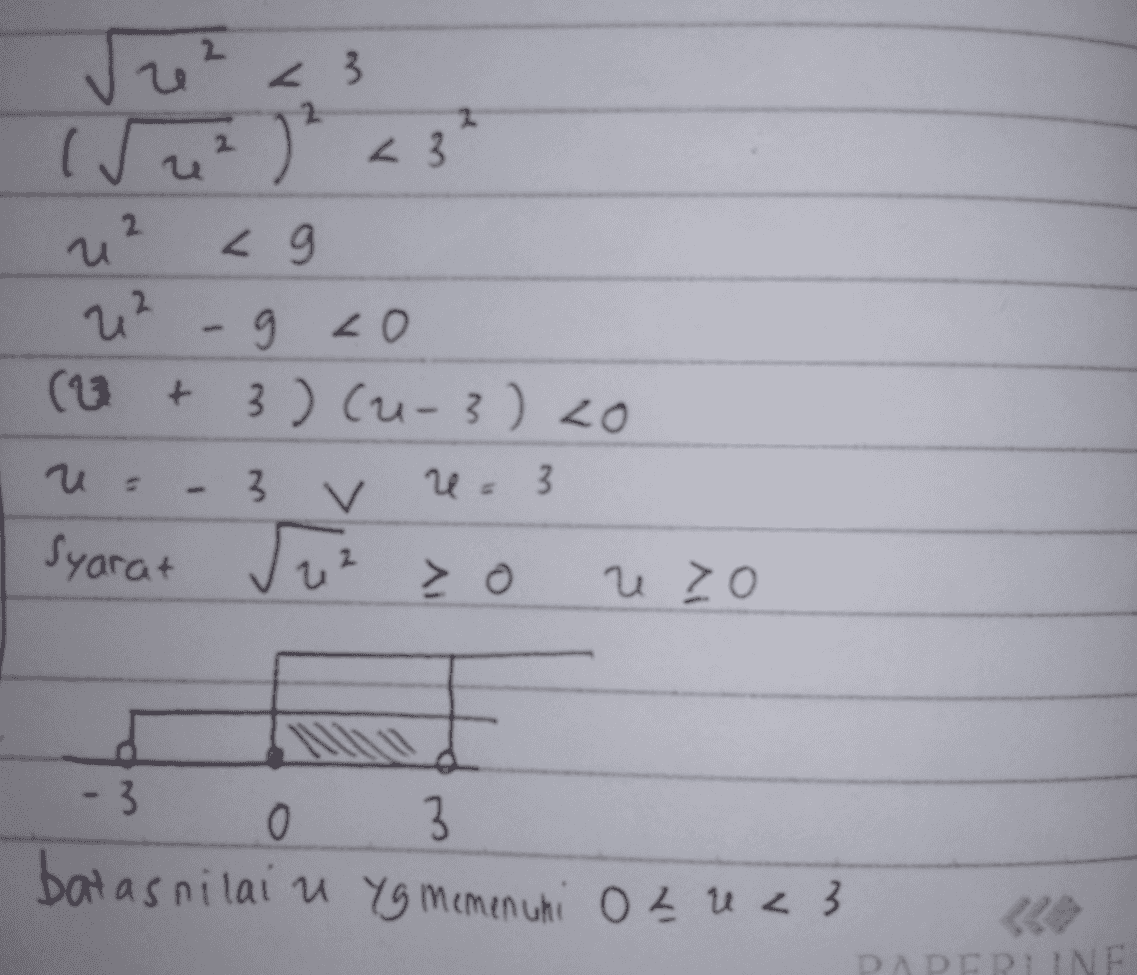 √u² < 3
(√u²)² < 3²
u² < 9
u² - 9 < 0
(u + 3) (u - 3) < 0
u = - 3 ∨ u = 3
Syarat √u² ≥ 0 u ≥ 0
-3 0 3
batas nilai u yg memenuhi 0 ≤ u < 3
PAPERLINE